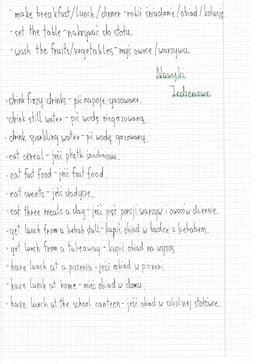 - make breakfast/lunch/dinner - robić śniadanie/obiad/kolację
- set the table - nakrywać do stołu
- wash the fruits/vegetables - myć owoce/warzywa
Nawyki
Jedzeniowe
- drink fizzy drinks - pić napoje gazowane
- drink still water - pić wodę niegazowaną
- drink sparkling water - pić wodę gazowaną
- eat cereal - jeść płatki śniadaniowe
- eat fast food - jeść fast food
- eat sweets - jeść słodycze
- eat three meals a day - jeść pięć porcji warzyw i owoców dziennie
- get lunch from a kebab stall - kupić obiad w budce z kebabem
- get lunch from a takeaway - kupić obiad na wynos
- have lunch at a pizzeria - jeść obiad w pizzerii
- have lunch at home - mieć obiad w domu
- have lunch at the school canteen - jeść obiad w szkolnej stołówce